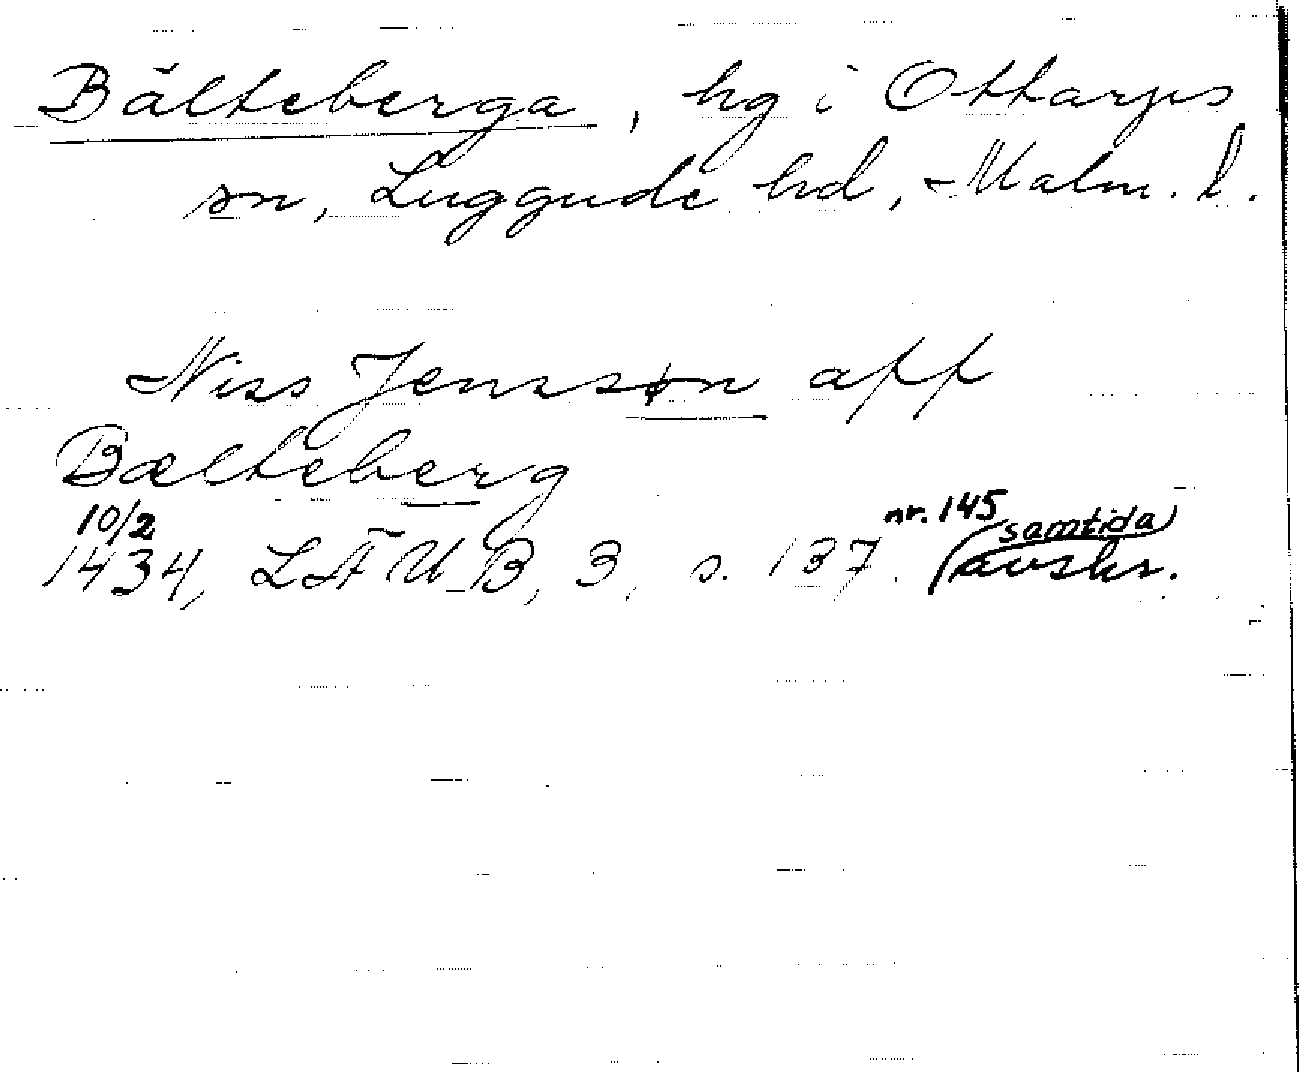 Bälteberga, hg i Ottarps
sn, Luggude hd, Malm. l.
Niss Jenssøn aff
Bælteberg
10/2 nr. 145 samtida
1434, LÄUB, 3, s. 137. (avskr.